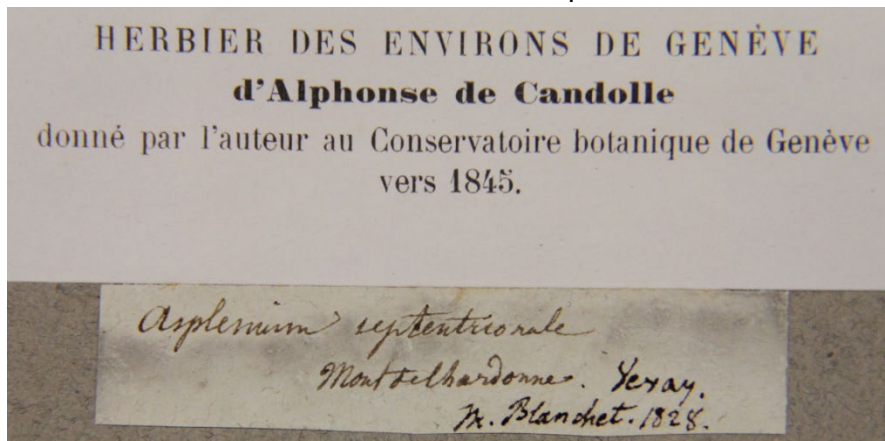 HERBIER DES ENVIRONS DE GENÈVE
d'Alphonse de Candolle
donné par l'auteur au Conservatoire botanique de Genève
vers 1845.
Asplenium septentrionale
Mont de Chardonne. Vevay.
M. Blanchet. 1828.